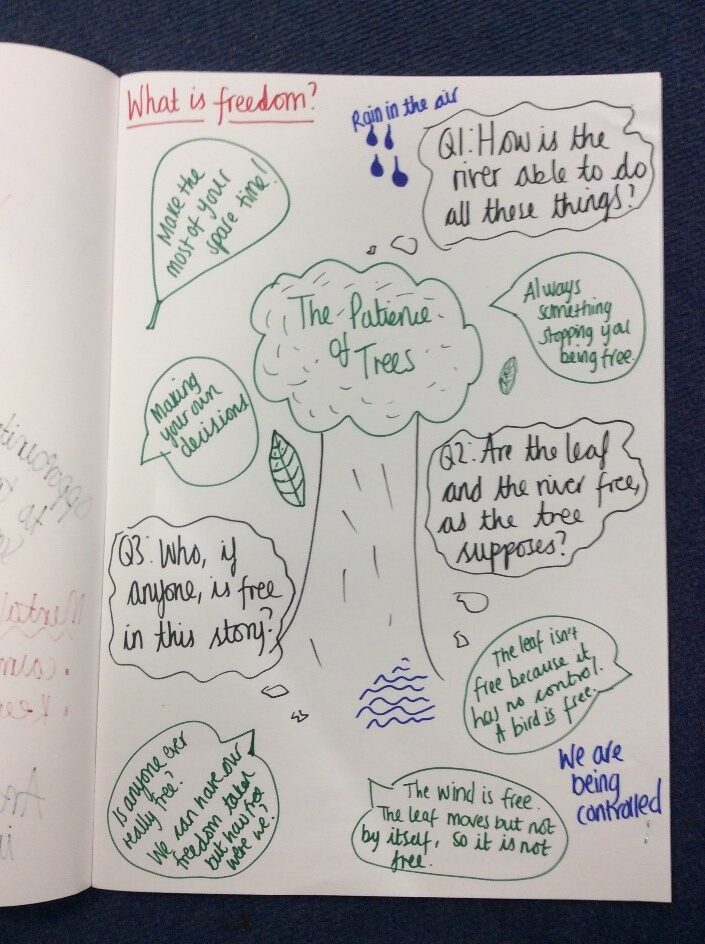 What is freedom?
Rain in the air
Q1: How is the
river able to do
all these things?
Make the
most of your
spare time!
The Patience
of
Trees
Always
something
stopping you
being free.
Making
your own
decisions
Q2: Are the leaf
and the river free,
as the tree
supposes?
Q3: Who, if
anyone, is free
in this story?
The leaf isn't
free because it
has no control.
A bird is free.
Is anyone ever
really free?
We can have our
freedom taken
but how free
were we?
The wind is free.
The leaf moves but not
by itself, so it is not
free.
We are
being
controlled